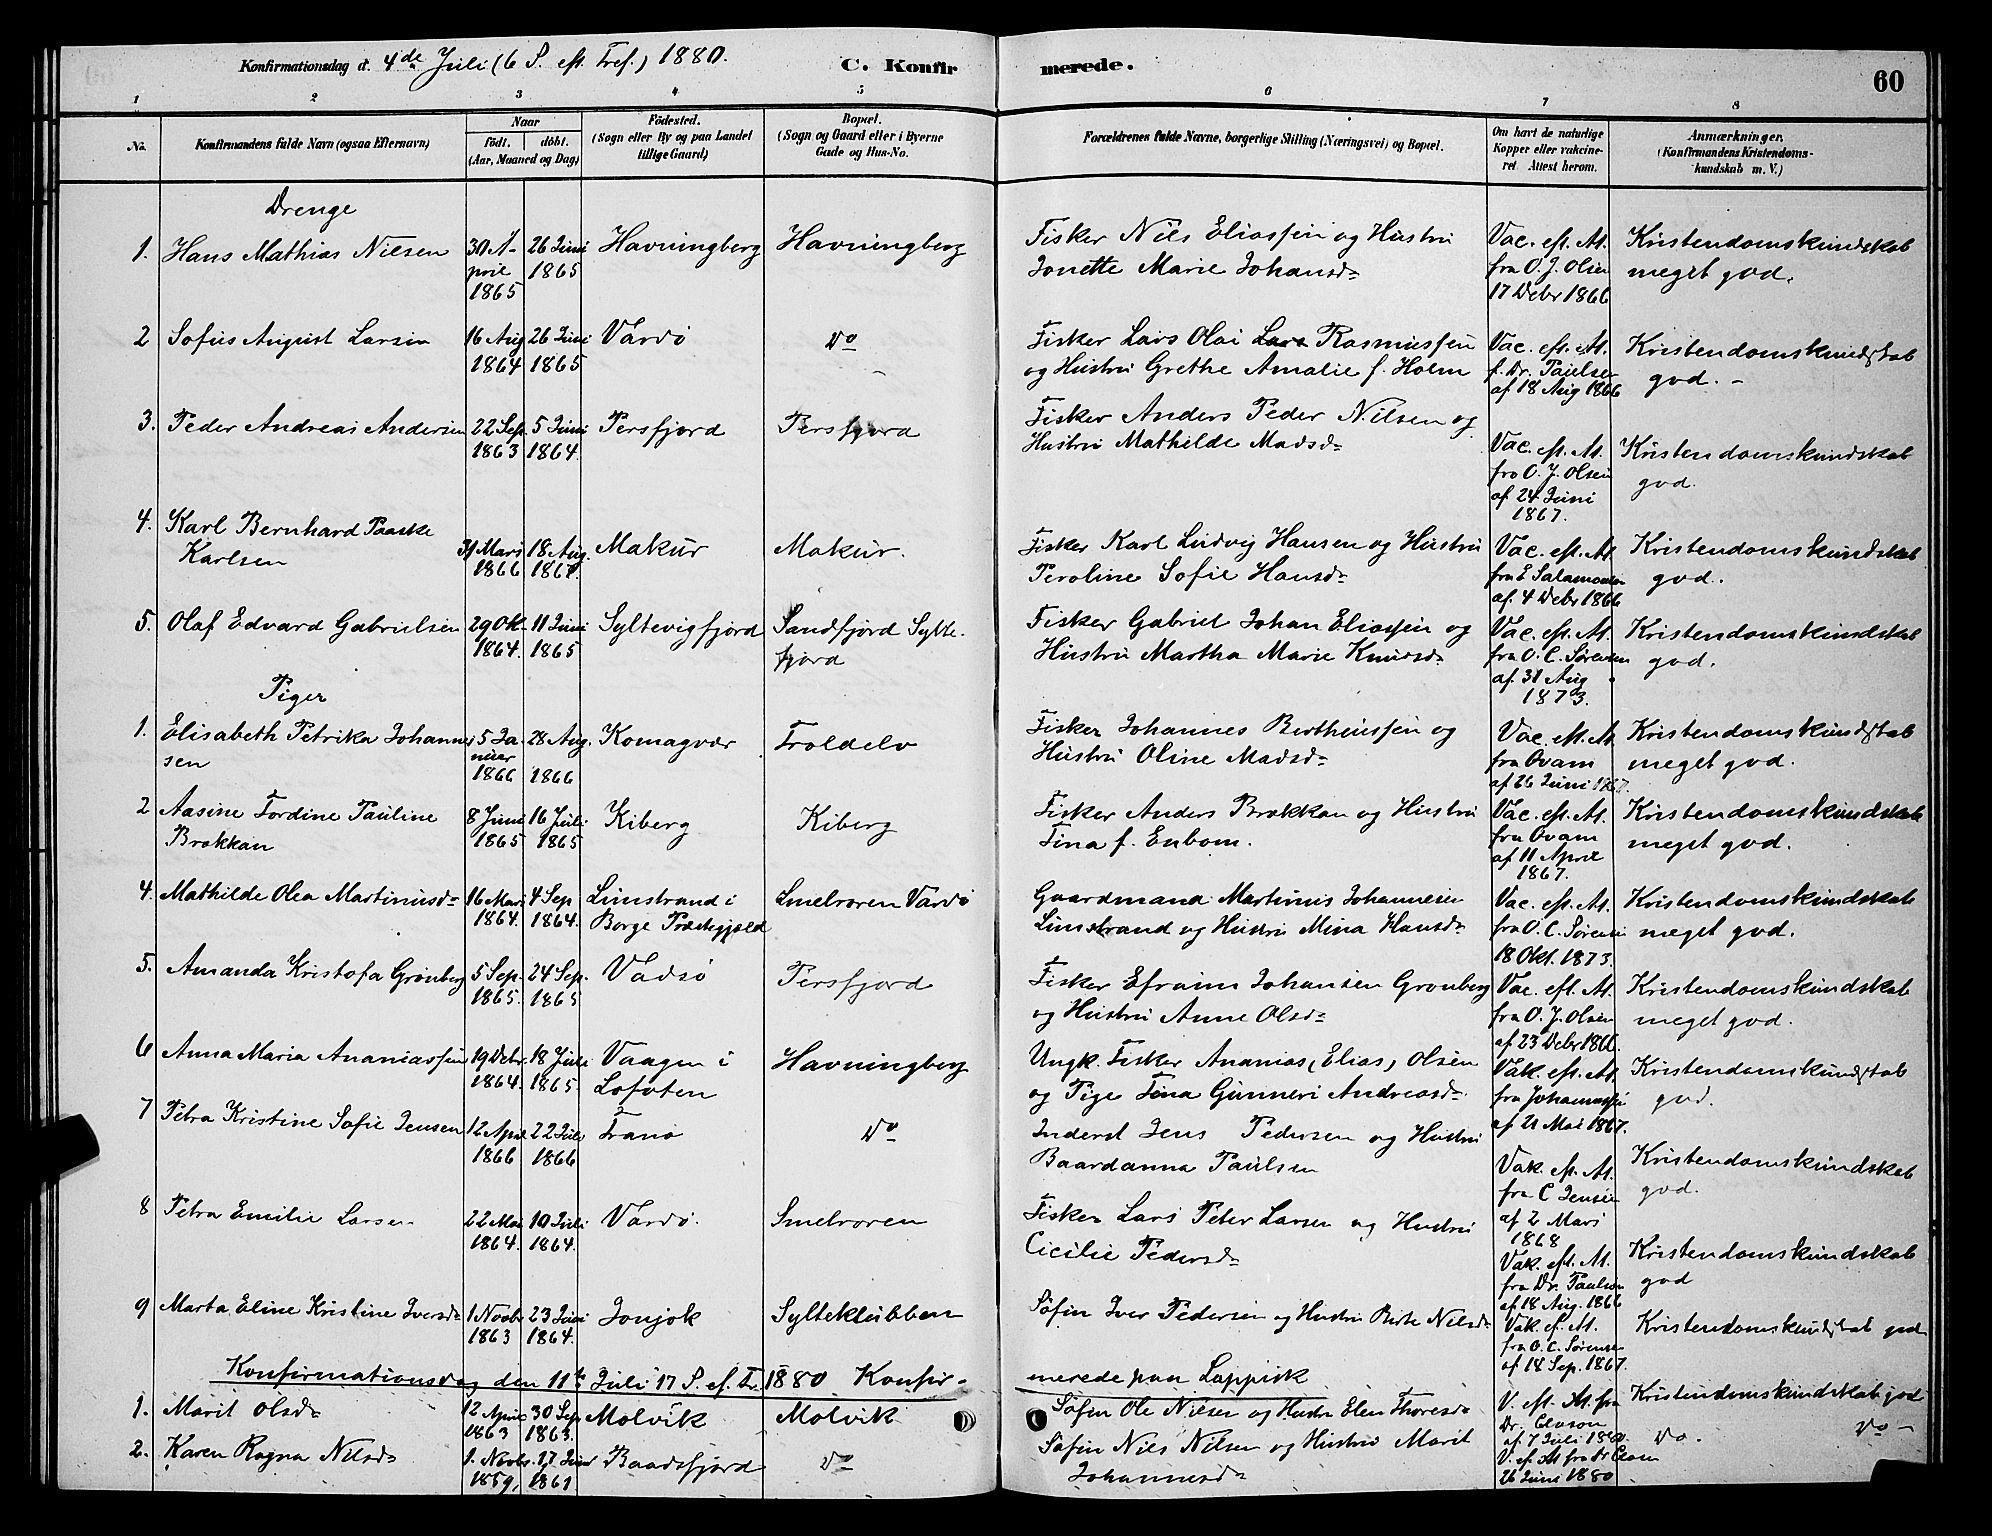 Konfirmationsdag d. 4de Juli (6 S. eft. Tref.) 1880.
C. Konfirmerede.
60
1 2 3 4 5 6 7 8
No.
Konfirmandens fulde Navn (ogsaa Efternavn)
Naar
födt. döbt.
(Aar, Maaned og Dag)
Födested.
(Sogn eller By og paa Landet
tillige Gaard)
Bopæl.
(Sogn og Gaard eller i Byerne
Gade og Hus-No.
Forældrenes fulde Navne, borgerlige Stilling (Næringsvei) og Bopæl.
Om havt de naturlige
Kopper eller vakcine-
ret Attest herom.
Anmærkninger.
(Konfirmandens Kristendoms-
kundskab m. V.)
Drenge
1. Hans Mathias Nilsen 30 A- 26 Juni Havningberg Havningberg Fisker Nils Eliassen og Hustru Vac. eft. At. Kristendomskundskab
pril 1865 Jonette Marie Johansd. fra O. J. Olsen meget god.
1865 17 Debr 1866
2 Sofus August Larsen 16 Aug 26 Juni Vardø do Fisker Lars Olai Lars Rasmussen Vac. eft. At. Kristendomskundskab
1864 1865 og Hustru Grethe Amalie f. Holm f. Dr. Paulsen god. -
af 18 Aug 1866
3. Peder Andreas Andersen 22 Sep. 5 Juni Persfjord Persfjord Fisker Anders Peder Nilsen og
1863 1864. Hustru Mathilde Madsd. Vac. eft. At. Kristendomskundskab
fra O. J. Olsen god.
af 24 Juni
1867.
4. Karl Bernhard Paaske
Karlsen 31 Mars 18 Aug. Makur Makur. Fisker Karl Ludvig Hansen og Hustru Vac. eft. At Kristendomskundskab
1866 Peroline Sofie Hansd. fra E Salamonsen god.
af. 4 Debr 1866
5. Olaf Edvard Gabrielsen 29 Okt. 11 Juni Syltevigfjord Sandfjord Sylte- Fisker Gabriel Johan Eliassen og Vac. eft. At. Kristendomskundskab
1864. 1865 fjord Hustru Martha Marie Knudsd. fra O. C. Sørensen god.
af. 31 Aug
1873.
Piger
1. Elisabeth Petrika Johanne 5 Ja- 28 Aug. Komagvær Troldelv Fisker Johannes Berthinssen og Vac. eft. At Kristendomskundskab
sen nuar 1866 Hustru Oline Madsd. fra Qvam meget god.
1866 af 26 Juni 1867.
2 Aasine Tordine Pauline 8 Juni 16 Juli Kiberg Kiberg Fisker Anders Brækkan og Hustru Vac. eft. At. Kristendomskundskab
Brækkan 1865 1865 Tina f. Enbom. fra Qvam meget god.
af 11 April
1867.
4. Mathilde Olea Martinusd. 16 Mars 4 Sep Limstrand i Smelroren Vardø Gaardmand Martinus Johannesen Vac. eft. At. Kristendomskundskab
1864. 1864. Borge Præstegjæld Limstrand og Hustru Mina Hansd. fra O. C. Sørensen meget god.
18 Okt. 1873.
5. Amanda Kristofa Grønberg 5 Sep. 24 Sep. Vadsø Persfjord Fisker Efraim Johansen Grønberg Vac. eft. At. Kristendomskundskab
1865. 1865 og Hustru Anne Olsd. fra O. J. Olsen meget god.
af 23 Debr 1866.
6 Anna Maria Ananiassen 19 Debr. 18 Juli Vaagen i Havningberg Ungk. Fisker Ananias (Elias) Olsen Vak. eft. At. Kristendomskundskab
1864. 1865. Lofoten og Pige Tina Gunneri Andreasd. fra Johannessen god.
af 21 Mai 1867.
7 Petra Kristine Sofie Jensen 12 Apr. 22 Juli Tranø do Inderst Jens Pedersen og Hustru
1866 1866 Baardanna Paulsen Vak. eft. At. Kristendomskundskab
fra C Jensen god.
af 2 Mars
1868
8 Petra Emilie Larsen 22 Mai 10 Juli Vardø. Smelroren Fisker Lars Peter Larsen og Hustru
1864. 1864. Cicilie Pedersd. Vak. eft. At. Kristendomskundskab
fra Dr. Paulsen god
af 18 Aug. 1866
9 Marta Eline Kristine Iversd. 1 Novbr 23 Juni Jonjok Sylteklubben Søfin Iver Pedersen og Hustru Birte Nilsd. Vak. ef. At. Kristendomskundskab god
1863 1864. fra O. C. Sørensen
af 18 Sep. 1867.
Konfirmationsdag den 11te Juli 17 S. ef. Tr. 1880 Konfir- merede paa Lappisk
1. Marit Olsd. 12 April 30 Sep Molvik Molvik Søfin Ole Nilsen og Hustru Elen Thoresd. V. eft. At. fra Kristendomskundskab god
1863 1863. Dr. Closon
af 7 Juli 1880. do. do -
2. Karen Ragna Nilsd. 1. Novbr. 17 Juni Baadsfjord do Søfin Nils Nilsen og Hustru Marit V. ef. At fra Dr Closon
1859, 1861 Johannesd. 26 Juni 1880